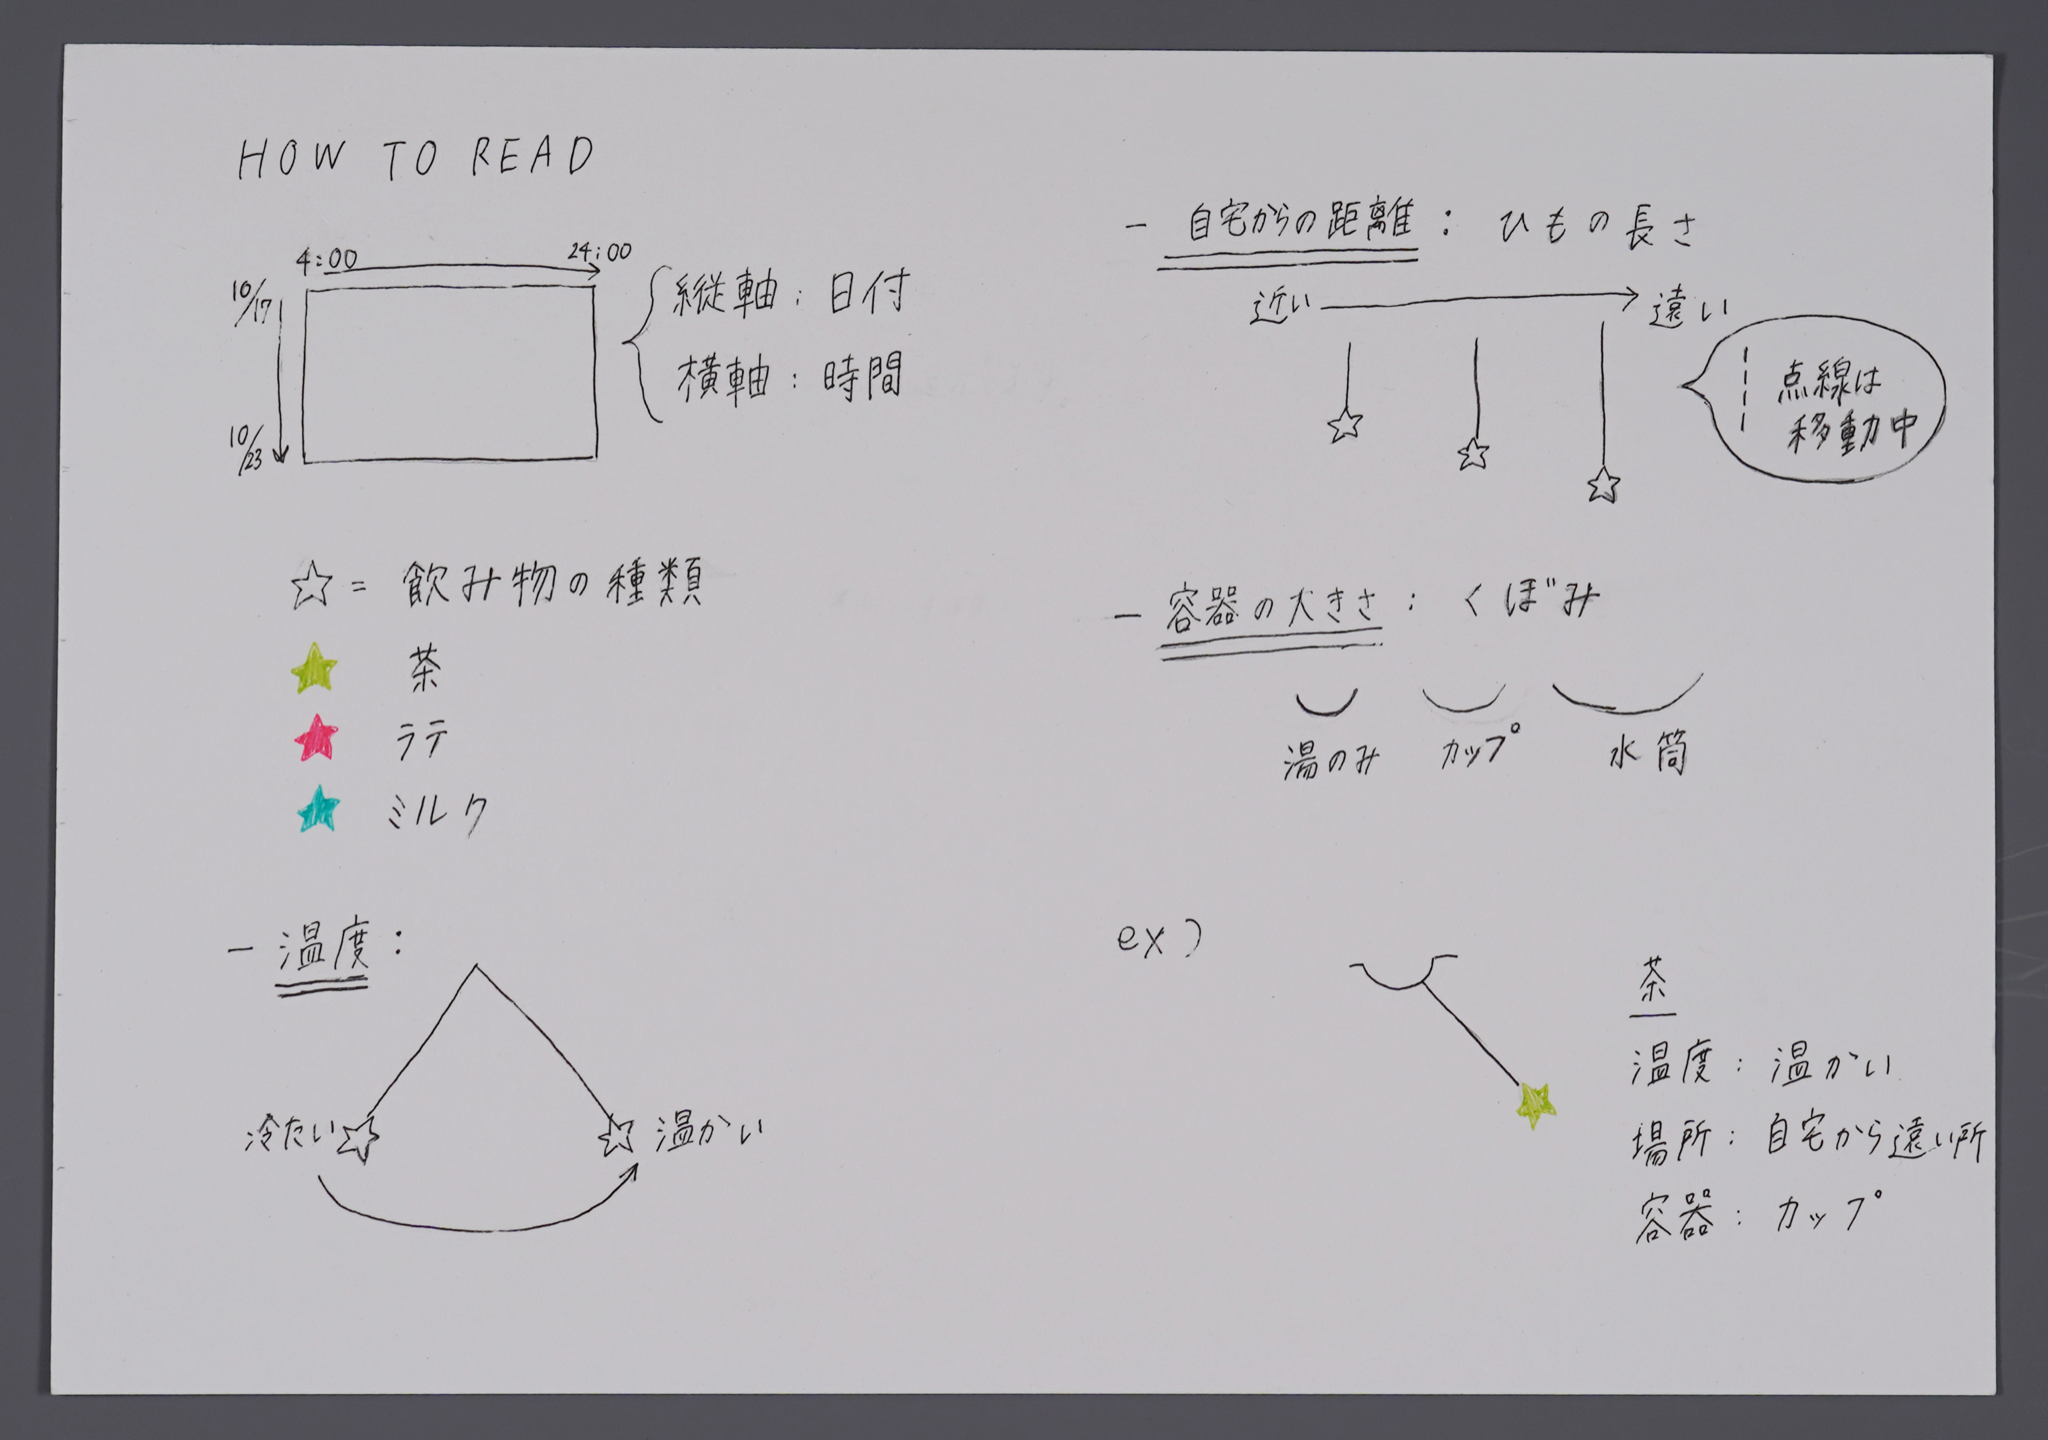 HOW TO READ
4:00
24:00
10/17
10/23
縦軸:日付
横軸:時間
☆=飲み物の種類
茶
ラテ
ミルク
- 温度:
冷たい
温かい
- 自宅からの距離: ひもの長さ
近い
遠い
点線は
移動中
- 容器の大きさ: くぼみ
湯のみ
カップ
水筒
ex)
茶
温度:温かい
場所:自宅から遠い所
容器:カップ